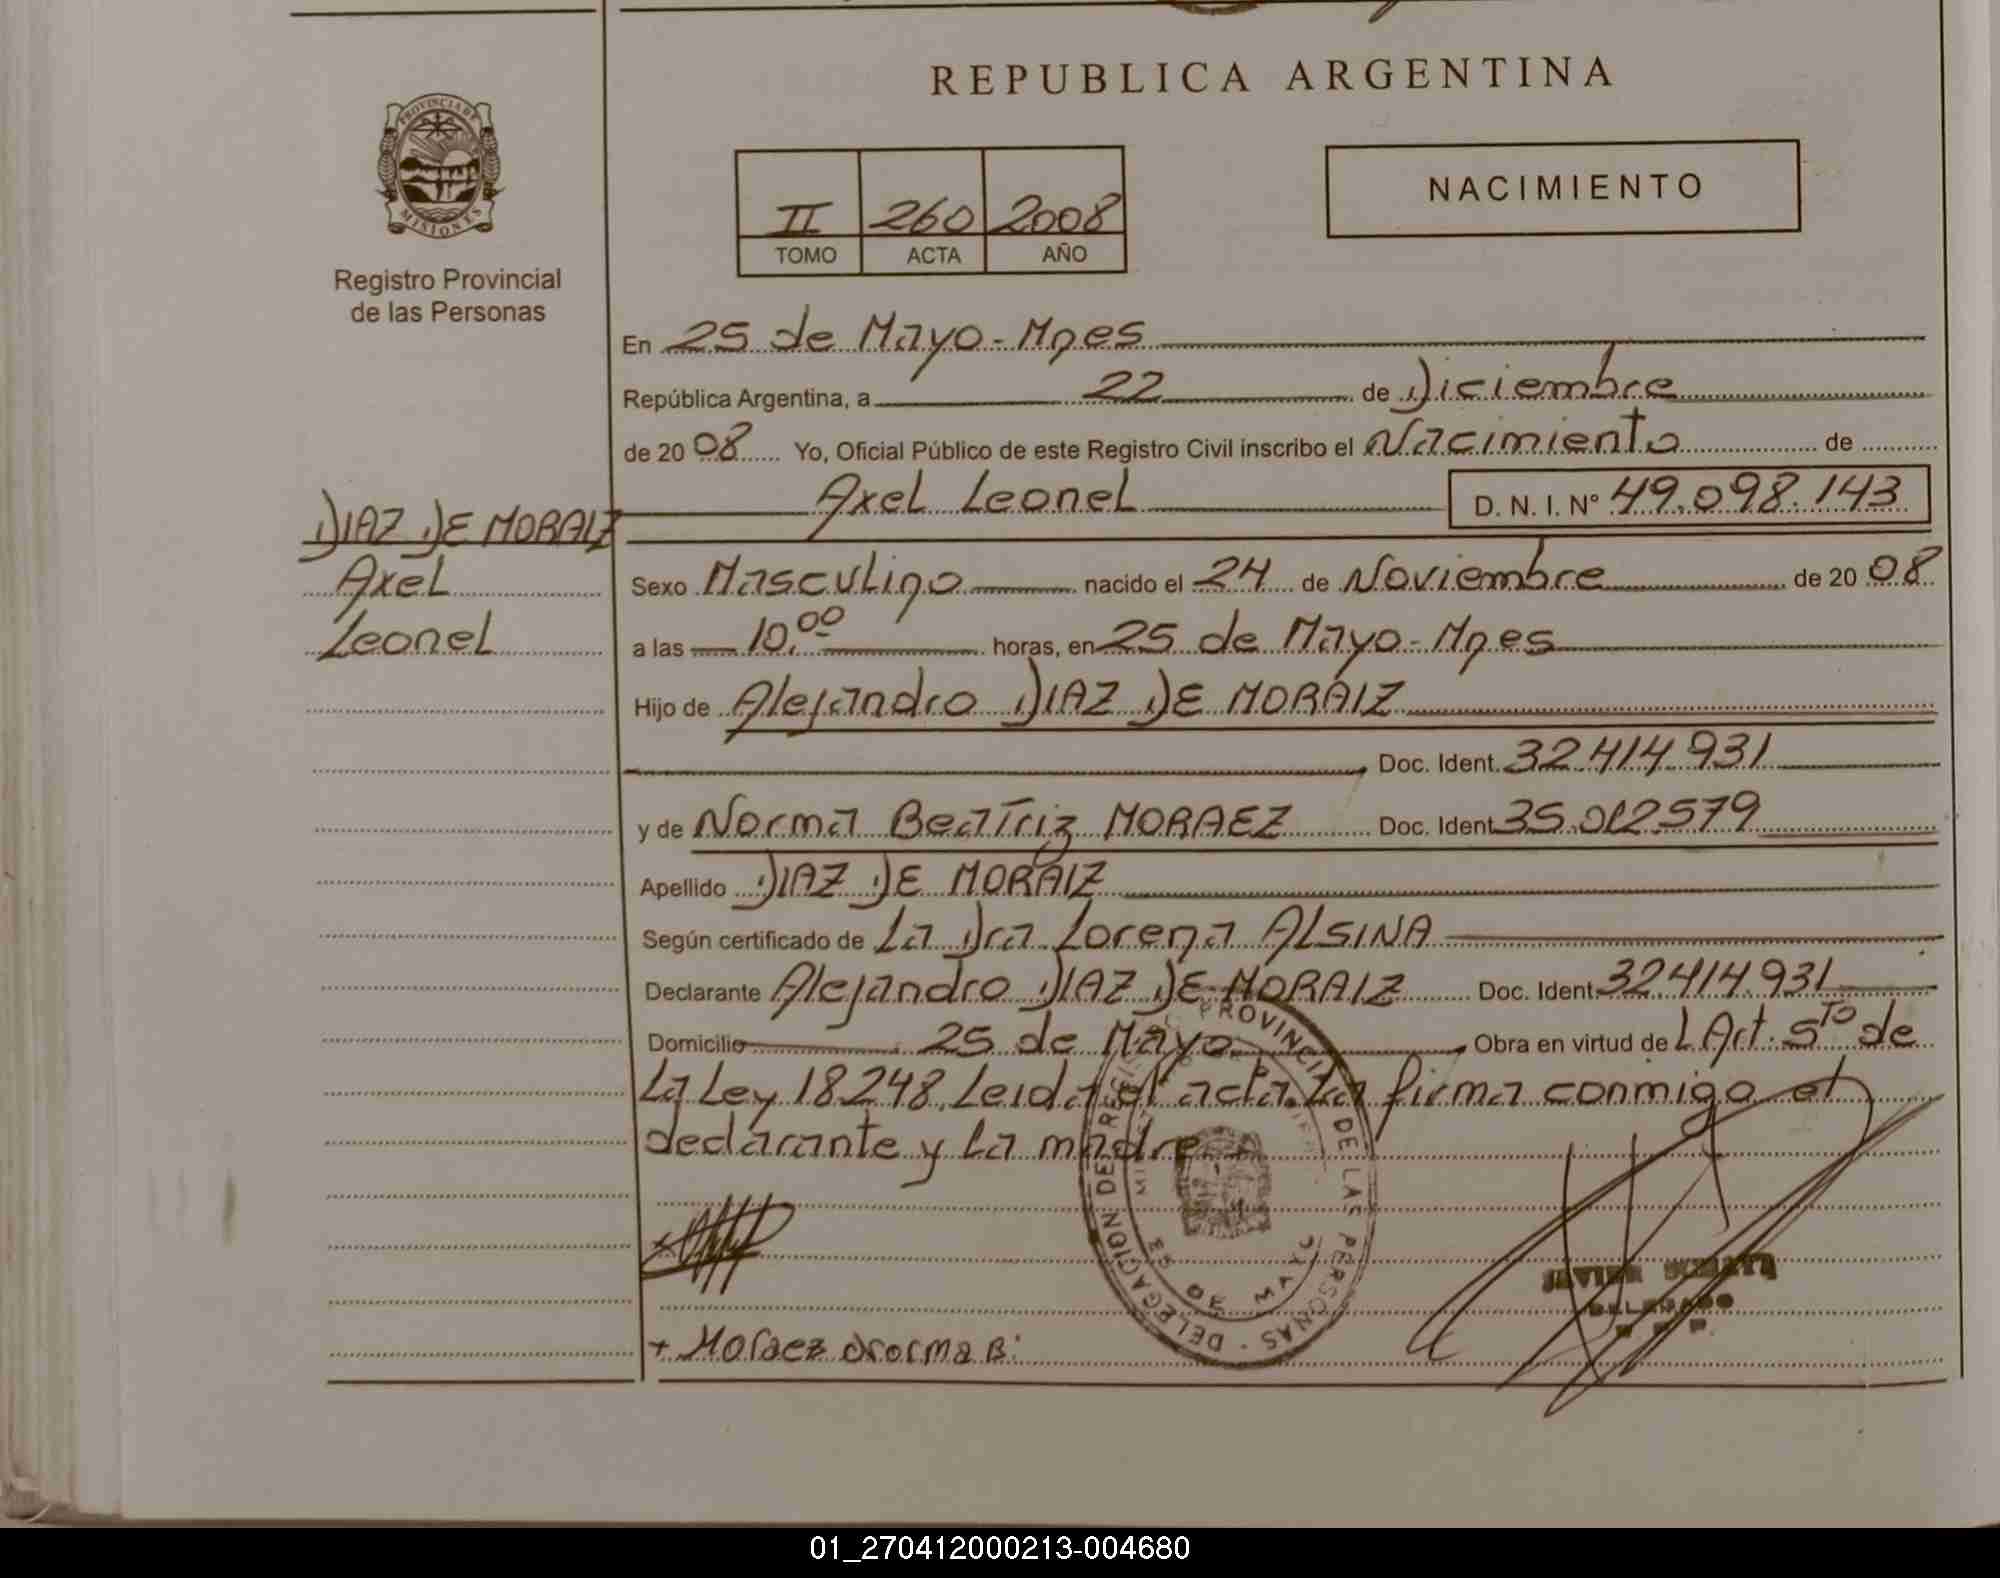 REPUBLICA ARGENTINA
PROVINCIA DE
MISIONES
Registro Provincial
de las Personas
II 260 2008
TOMO ACTA AÑO
NACIMIENTO
En 25 de Mayo - Mnes
República Argentina, a 22 de Diciembre
de 20 08 Yo, Oficial Público de este Registro Civil inscribo el Nacimiento de
Axel Leonel D. N. I. N° 49.098.143
DIAZ DE MORAIZ
Axel
Leonel
Sexo Masculino nacido el 24 de Noviembre de 20 08
a las 10.00 horas, en 25 de Mayo - Mnes
Hijo de Alejandro DIAZ DE MORAIZ
Doc. Ident. 32.414.931
y de Norma Beatriz MORAEZ Doc. Ident. 35.012.579
Apellido DIAZ DE MORAIZ
Según certificado de La Dra Lorena ALSINA
Declarante Alejandro DIAZ DE MORAIZ Doc. Ident. 32.414.931
Domicilio 25 de Mayo. Obra en virtud de L Art. 5to de
La Ley 18.248. Leida el acta. La firma conmigo el
declarante y La madre
PROVINCIAL DE LAS PERSONAS - DELEGACION DE
25 DE MAYO
JAVIER
DELEGADO
+ Moraez Norma B:
01_270412000213-004680